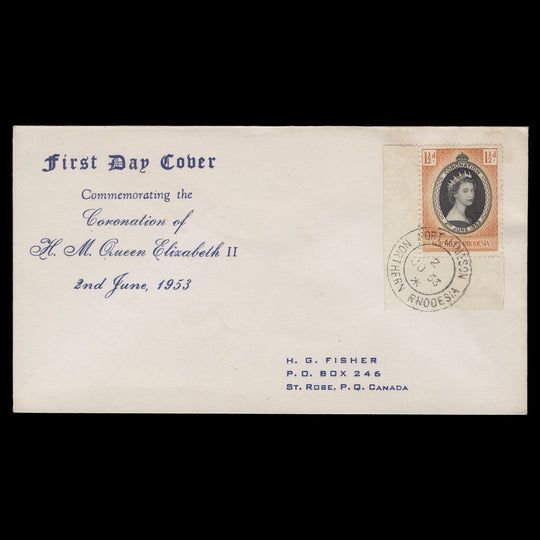 First Day Cover
Commemorating the
Coronation of
H. M. Queen Elizabeth II
2nd June, 1953
1½d 1½d
CORONATION
2 JUNE 1953
RHODESIA
FORT JAMESON
2 JU
53
NORTHERN RHODESIA
H. G. FISHER
P.O. BOX 246
ST. ROSE, P.Q. CANADA